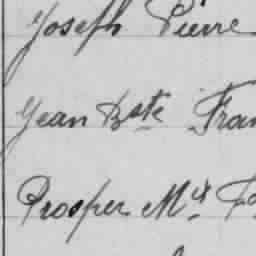 Joseph Pierre
Jean Bste Fran
Prosper Mie